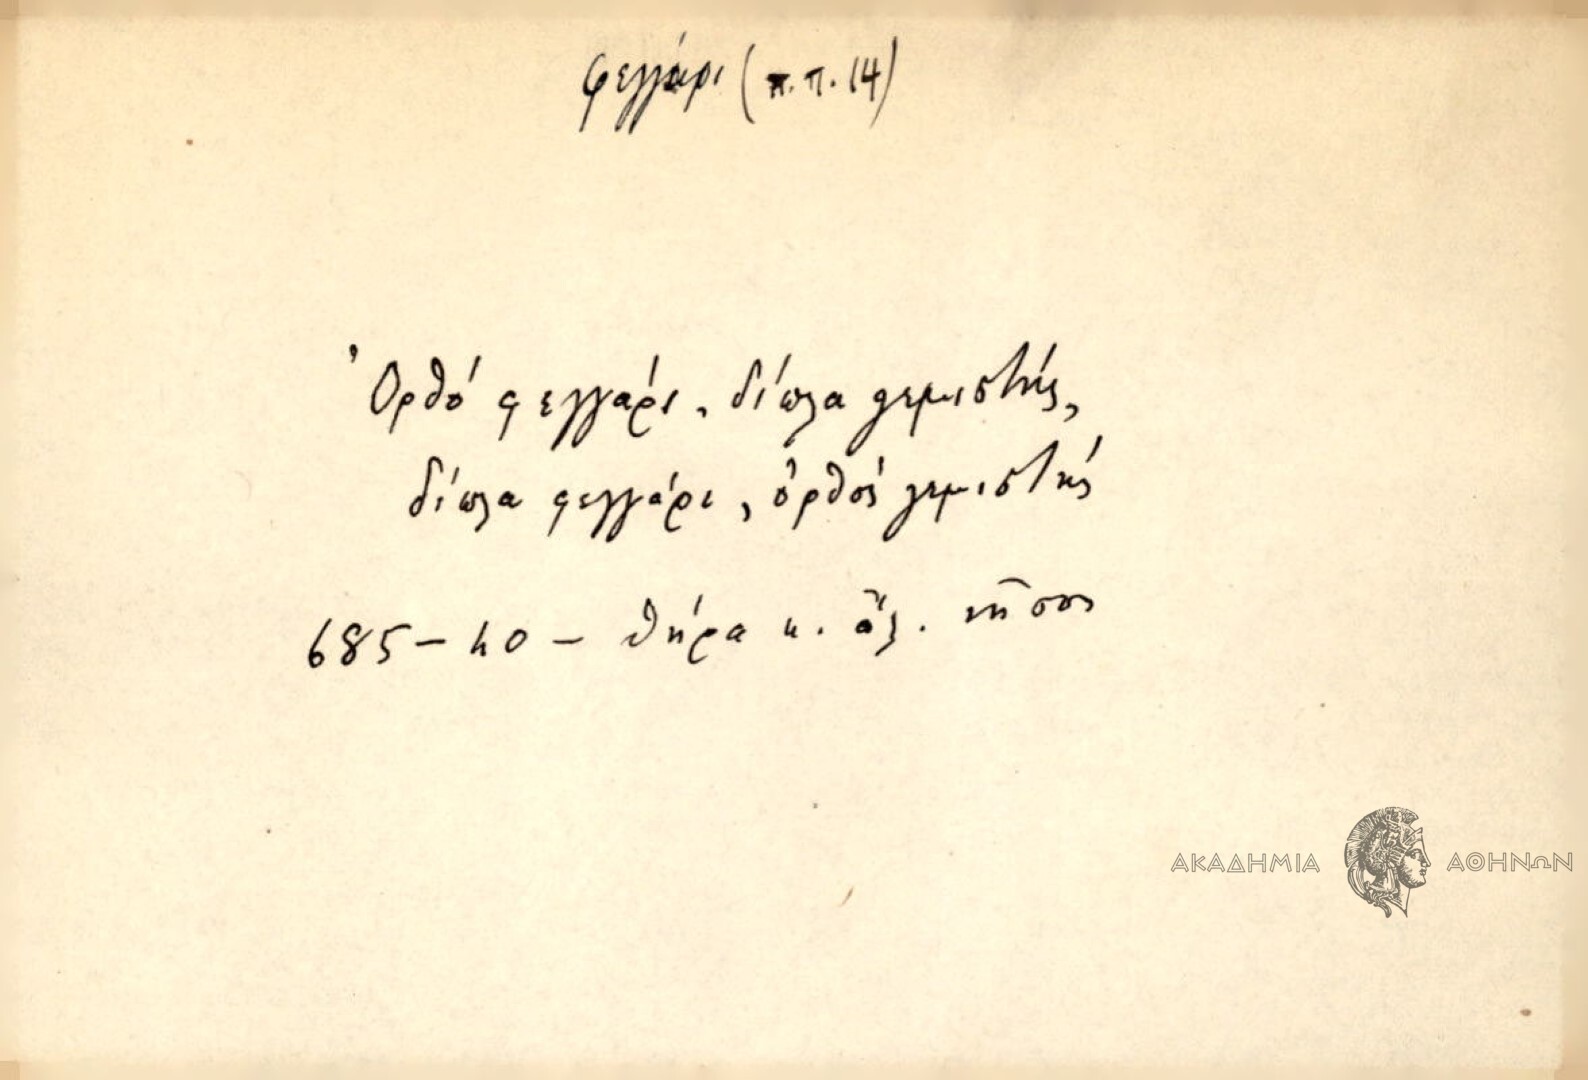 φεγγάρι (π.π. 14)
Ὀρθό φεγγάρι, δίπλα γεμιστής,
δίπλα φεγγάρι, ὀρθός γεμιστής
685 – 40 – Θήρα κ. ἄλ. νῆσοι
ΑΚΑΔΗΜΙΑ ΑΘΗΝΩΝ